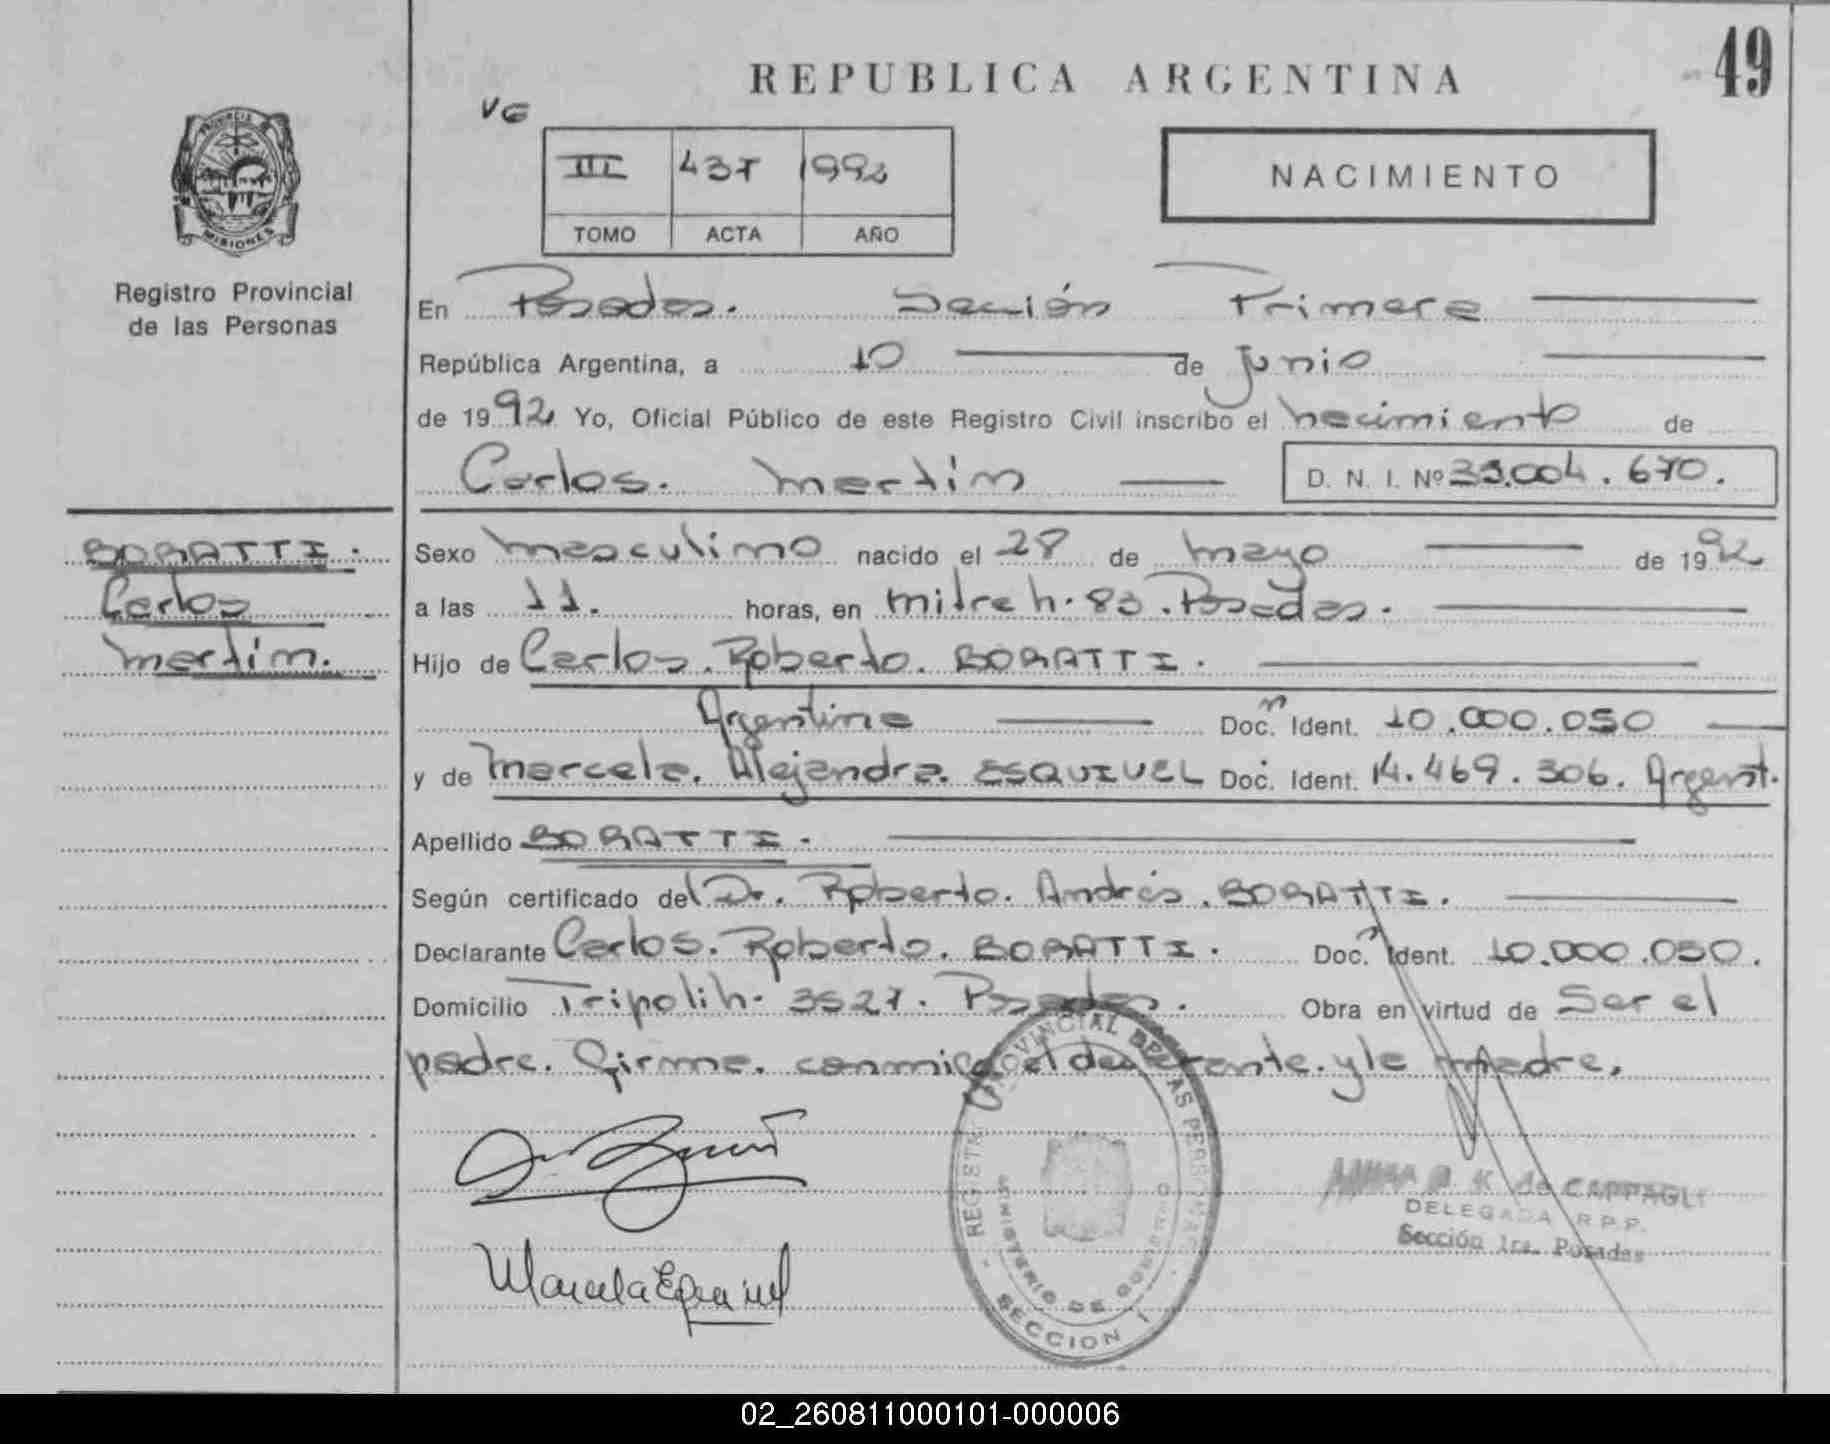 49
REPUBLICA ARGENTINA
VG
III 437 1992
TOMO ACTA AÑO
NACIMIENTO
PROVINCIA DE
MISIONES
Registro Provincial
de las Personas
En Posadas. Sección Primera
República Argentina, a 10 de junio
de 1992 Yo, Oficial Público de este Registro Civil inscribo el nacimiento de
Carlos. Martin D. N. I. Nº 33.004.670.
BORATTI.
Carlos
Martin.
Sexo masculino nacido el 28 de mayo de 1992
a las 11. horas, en mitre h. 83. Posadas.
Hijo de Carlos. Roberto. BORATTI.
Argentino Doc. Ident. 10.000.050
y de Marcela. Alejandra. ESQUIVEL Doc. Ident. 14.469.306. Argent.
Apellido BORATTI.
Según certificado del Dr. Roberto. Andrés. BORATTI.
Declarante Carlos. Roberto. BORATTI. Doc. Ident. 10.000.050.
Domicilio Tripoli h. 3527. Posadas. Obra en virtud de Ser el
padre. Firma. conmigo el declarante. y la madre.
REGISTRO PROVINCIAL DE LAS PERSONAS
MINISTERIO DE GOBIERNO
SECCION 1
K de CAPPAGLI
DELEGADA R.P.P.
Sección 1ra. Posadas
Marcela Esquivel
02_260811000101-000006